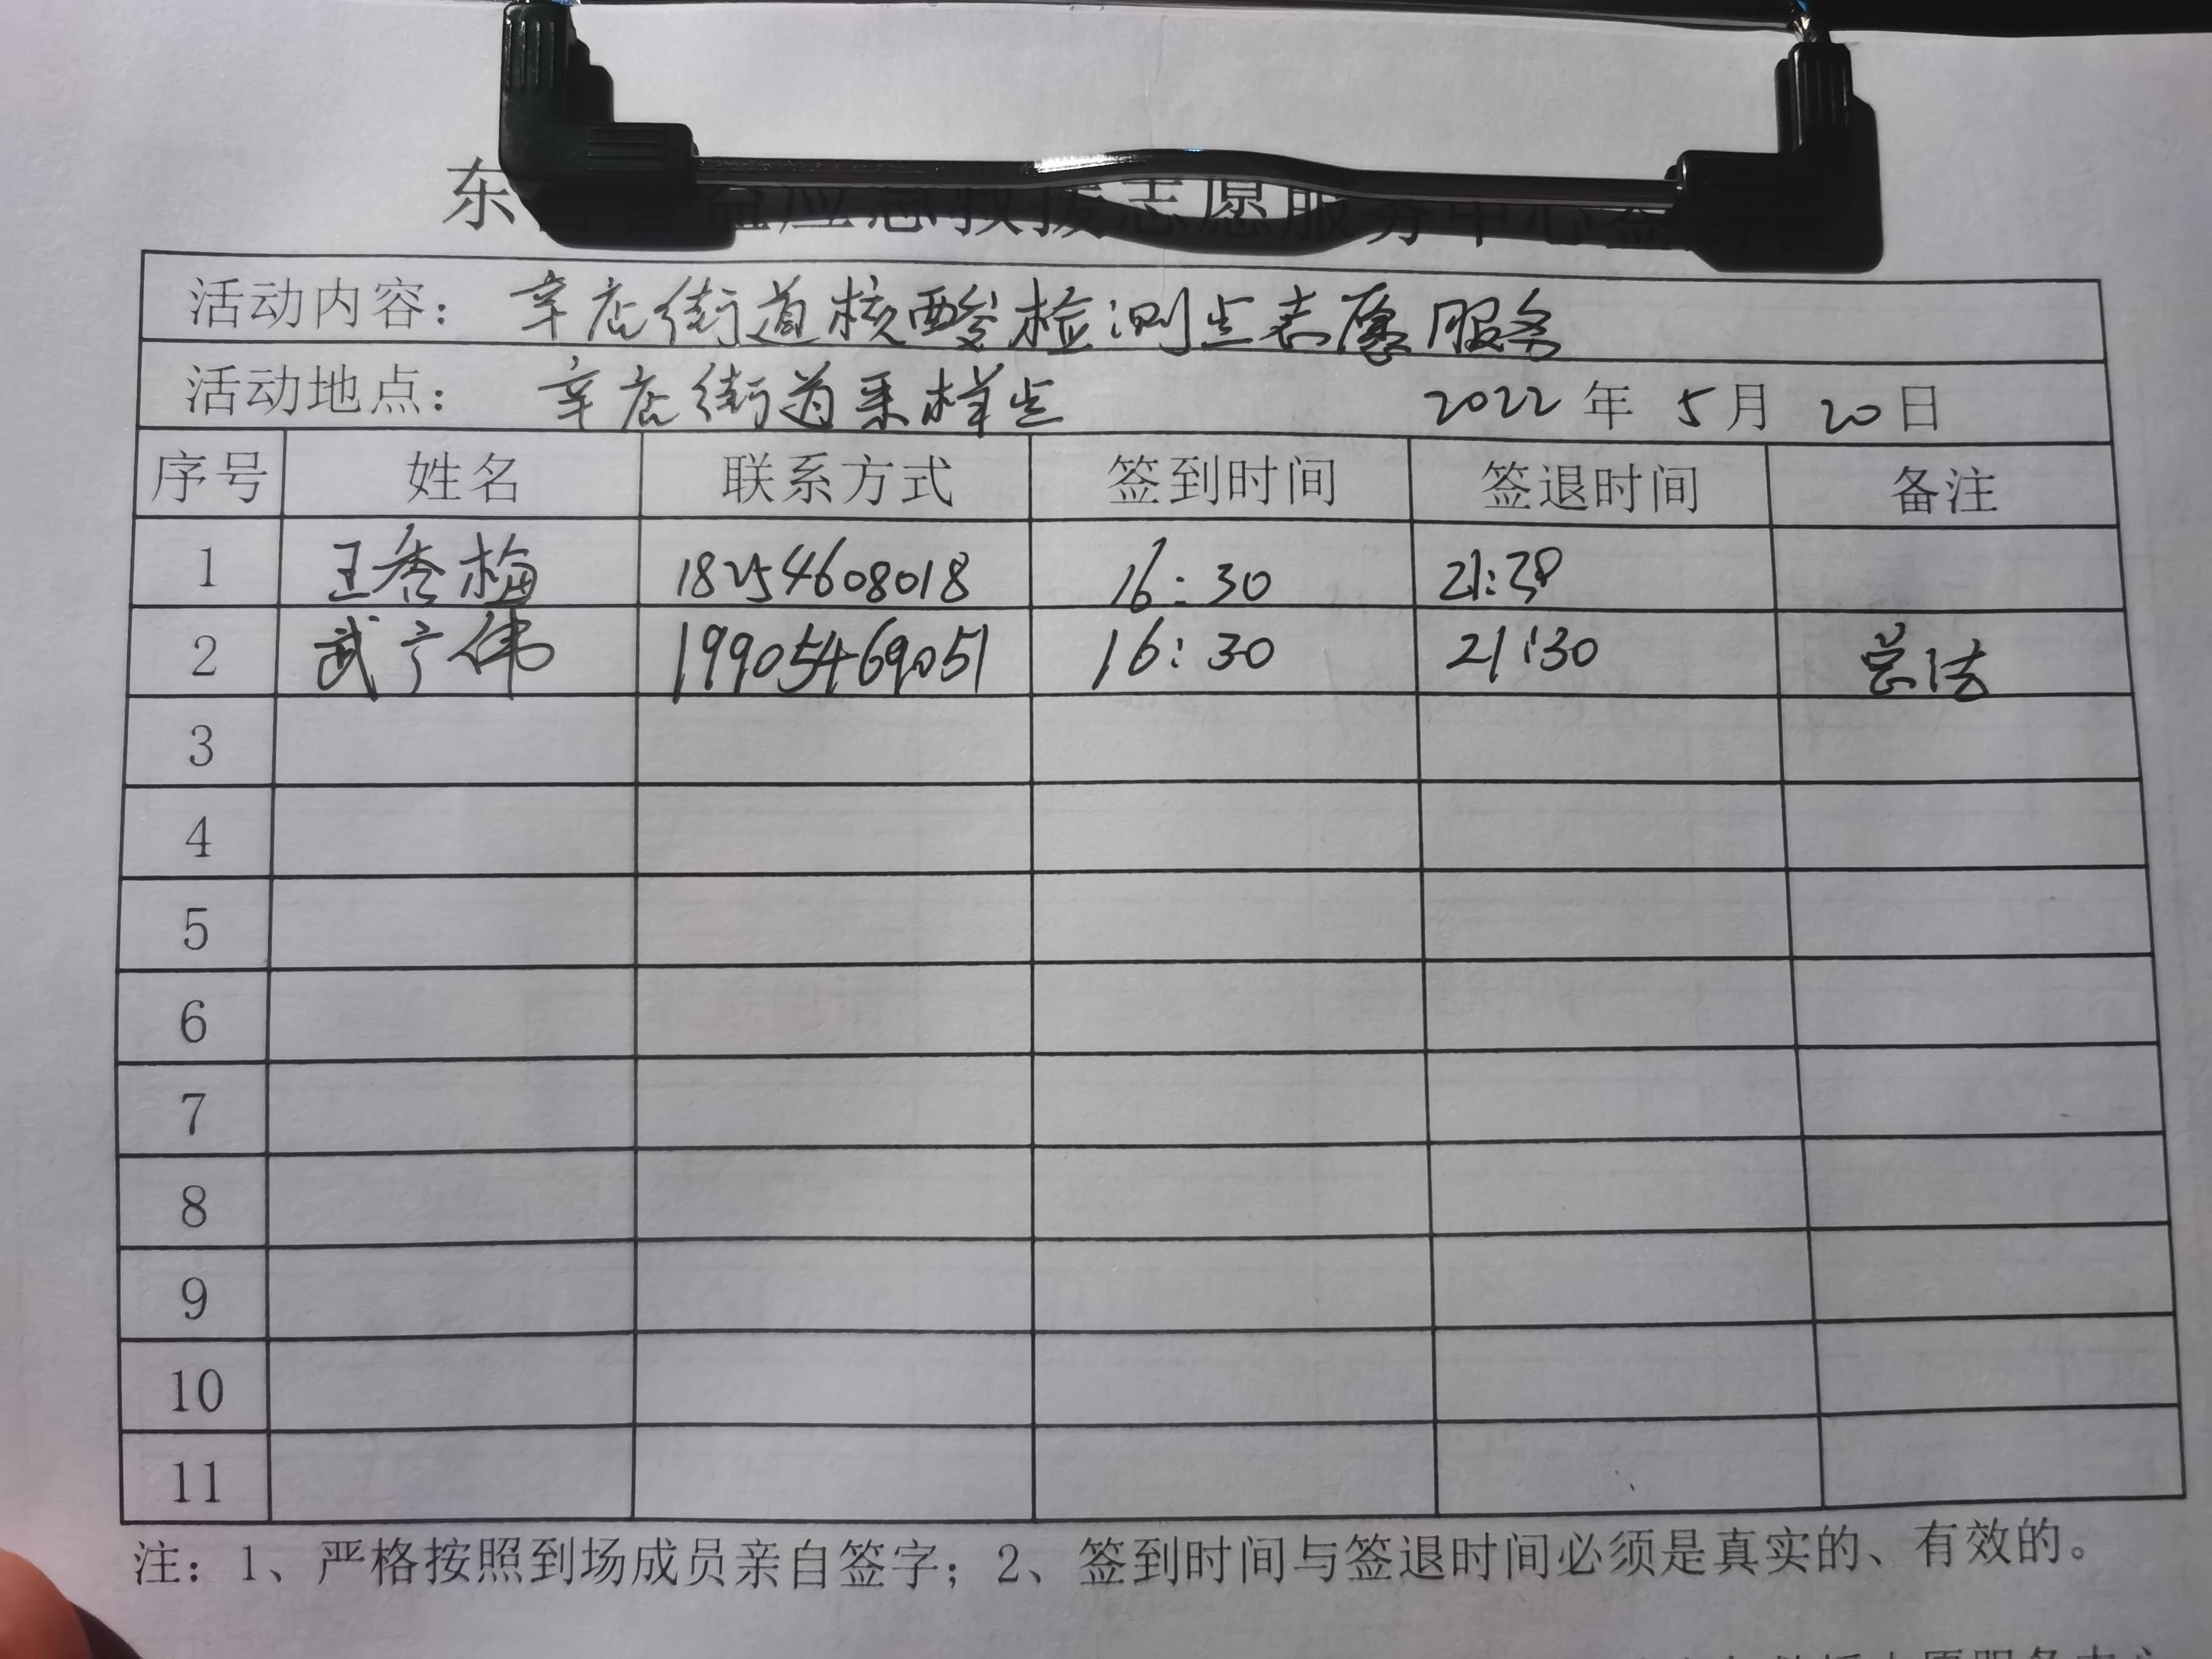 东营益应急救援志愿服务中心签
活动内容： 辛店街道核酸检测点志愿服务
活动地点： 辛店街道采样点 2022 年 5 月 20 日
序号 姓名 联系方式 签到时间 签退时间 备注
1 王秀梅 18254608018 16:30 21:30
2 武广伟 19905469051 16:30 21:30
3
4
5
6
7
8
9
10
11
注：1、严格按照到场成员亲自签字；2、签到时间与签退时间必须是真实的、有效的。
救援志愿服务中心